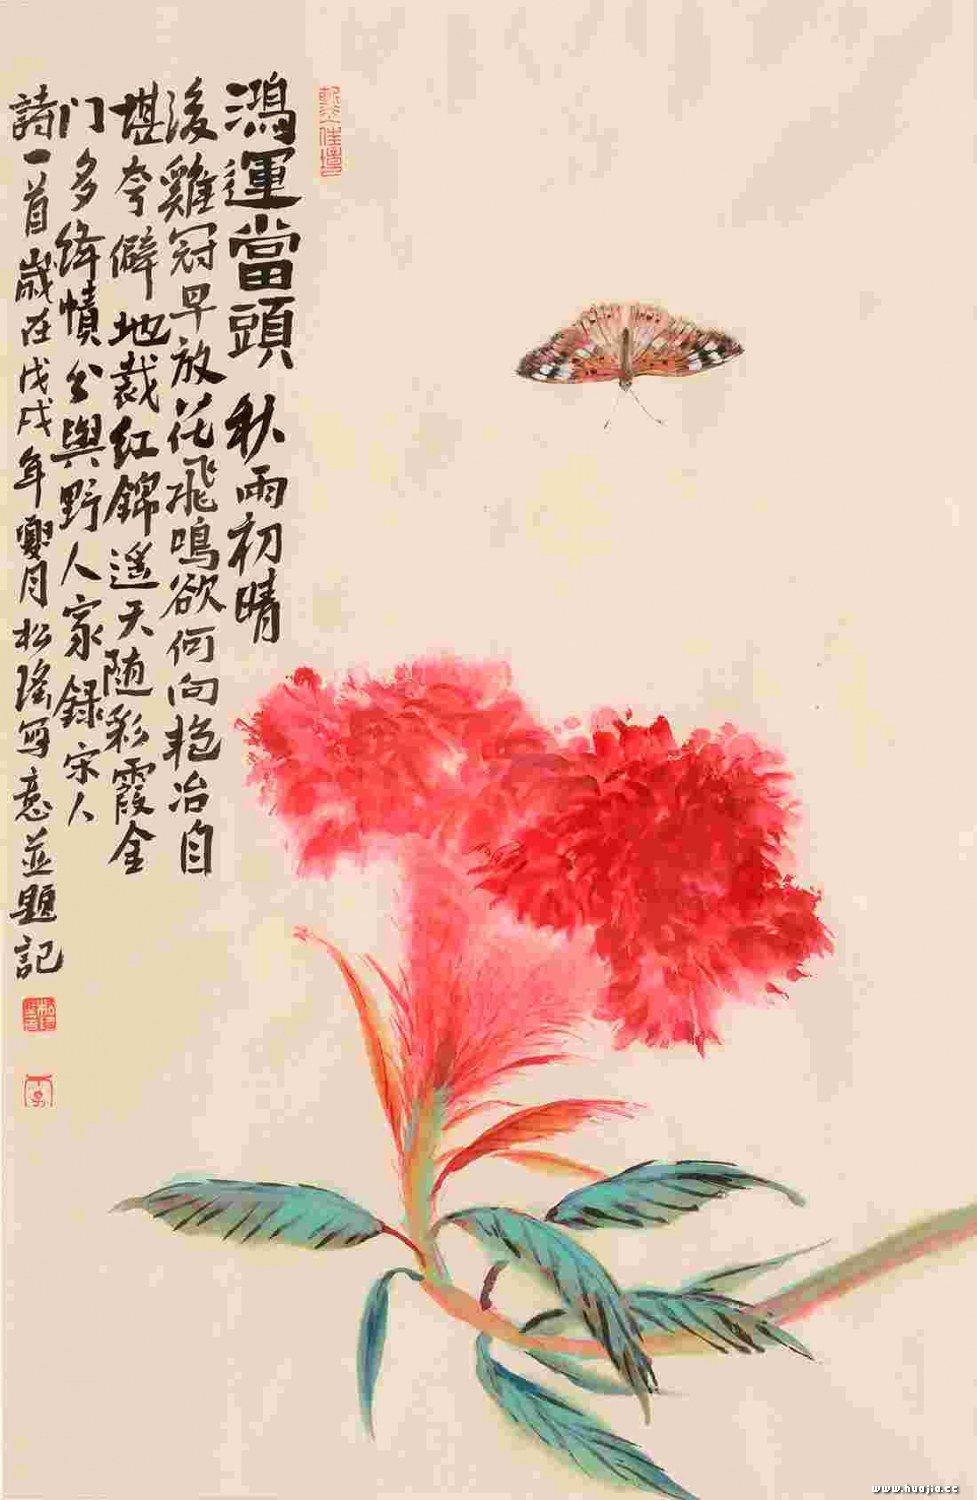 鴻運當頭 秋雨初晴
後雞冠早放花飛鳴欲何向艳冶自
堪夸僻地裁红錦遥天随彩霞金
门多绛幘分與野人家録宋人
詩一首歲在戊戌年夏月松瑤写意並題記
www.huajia.cc